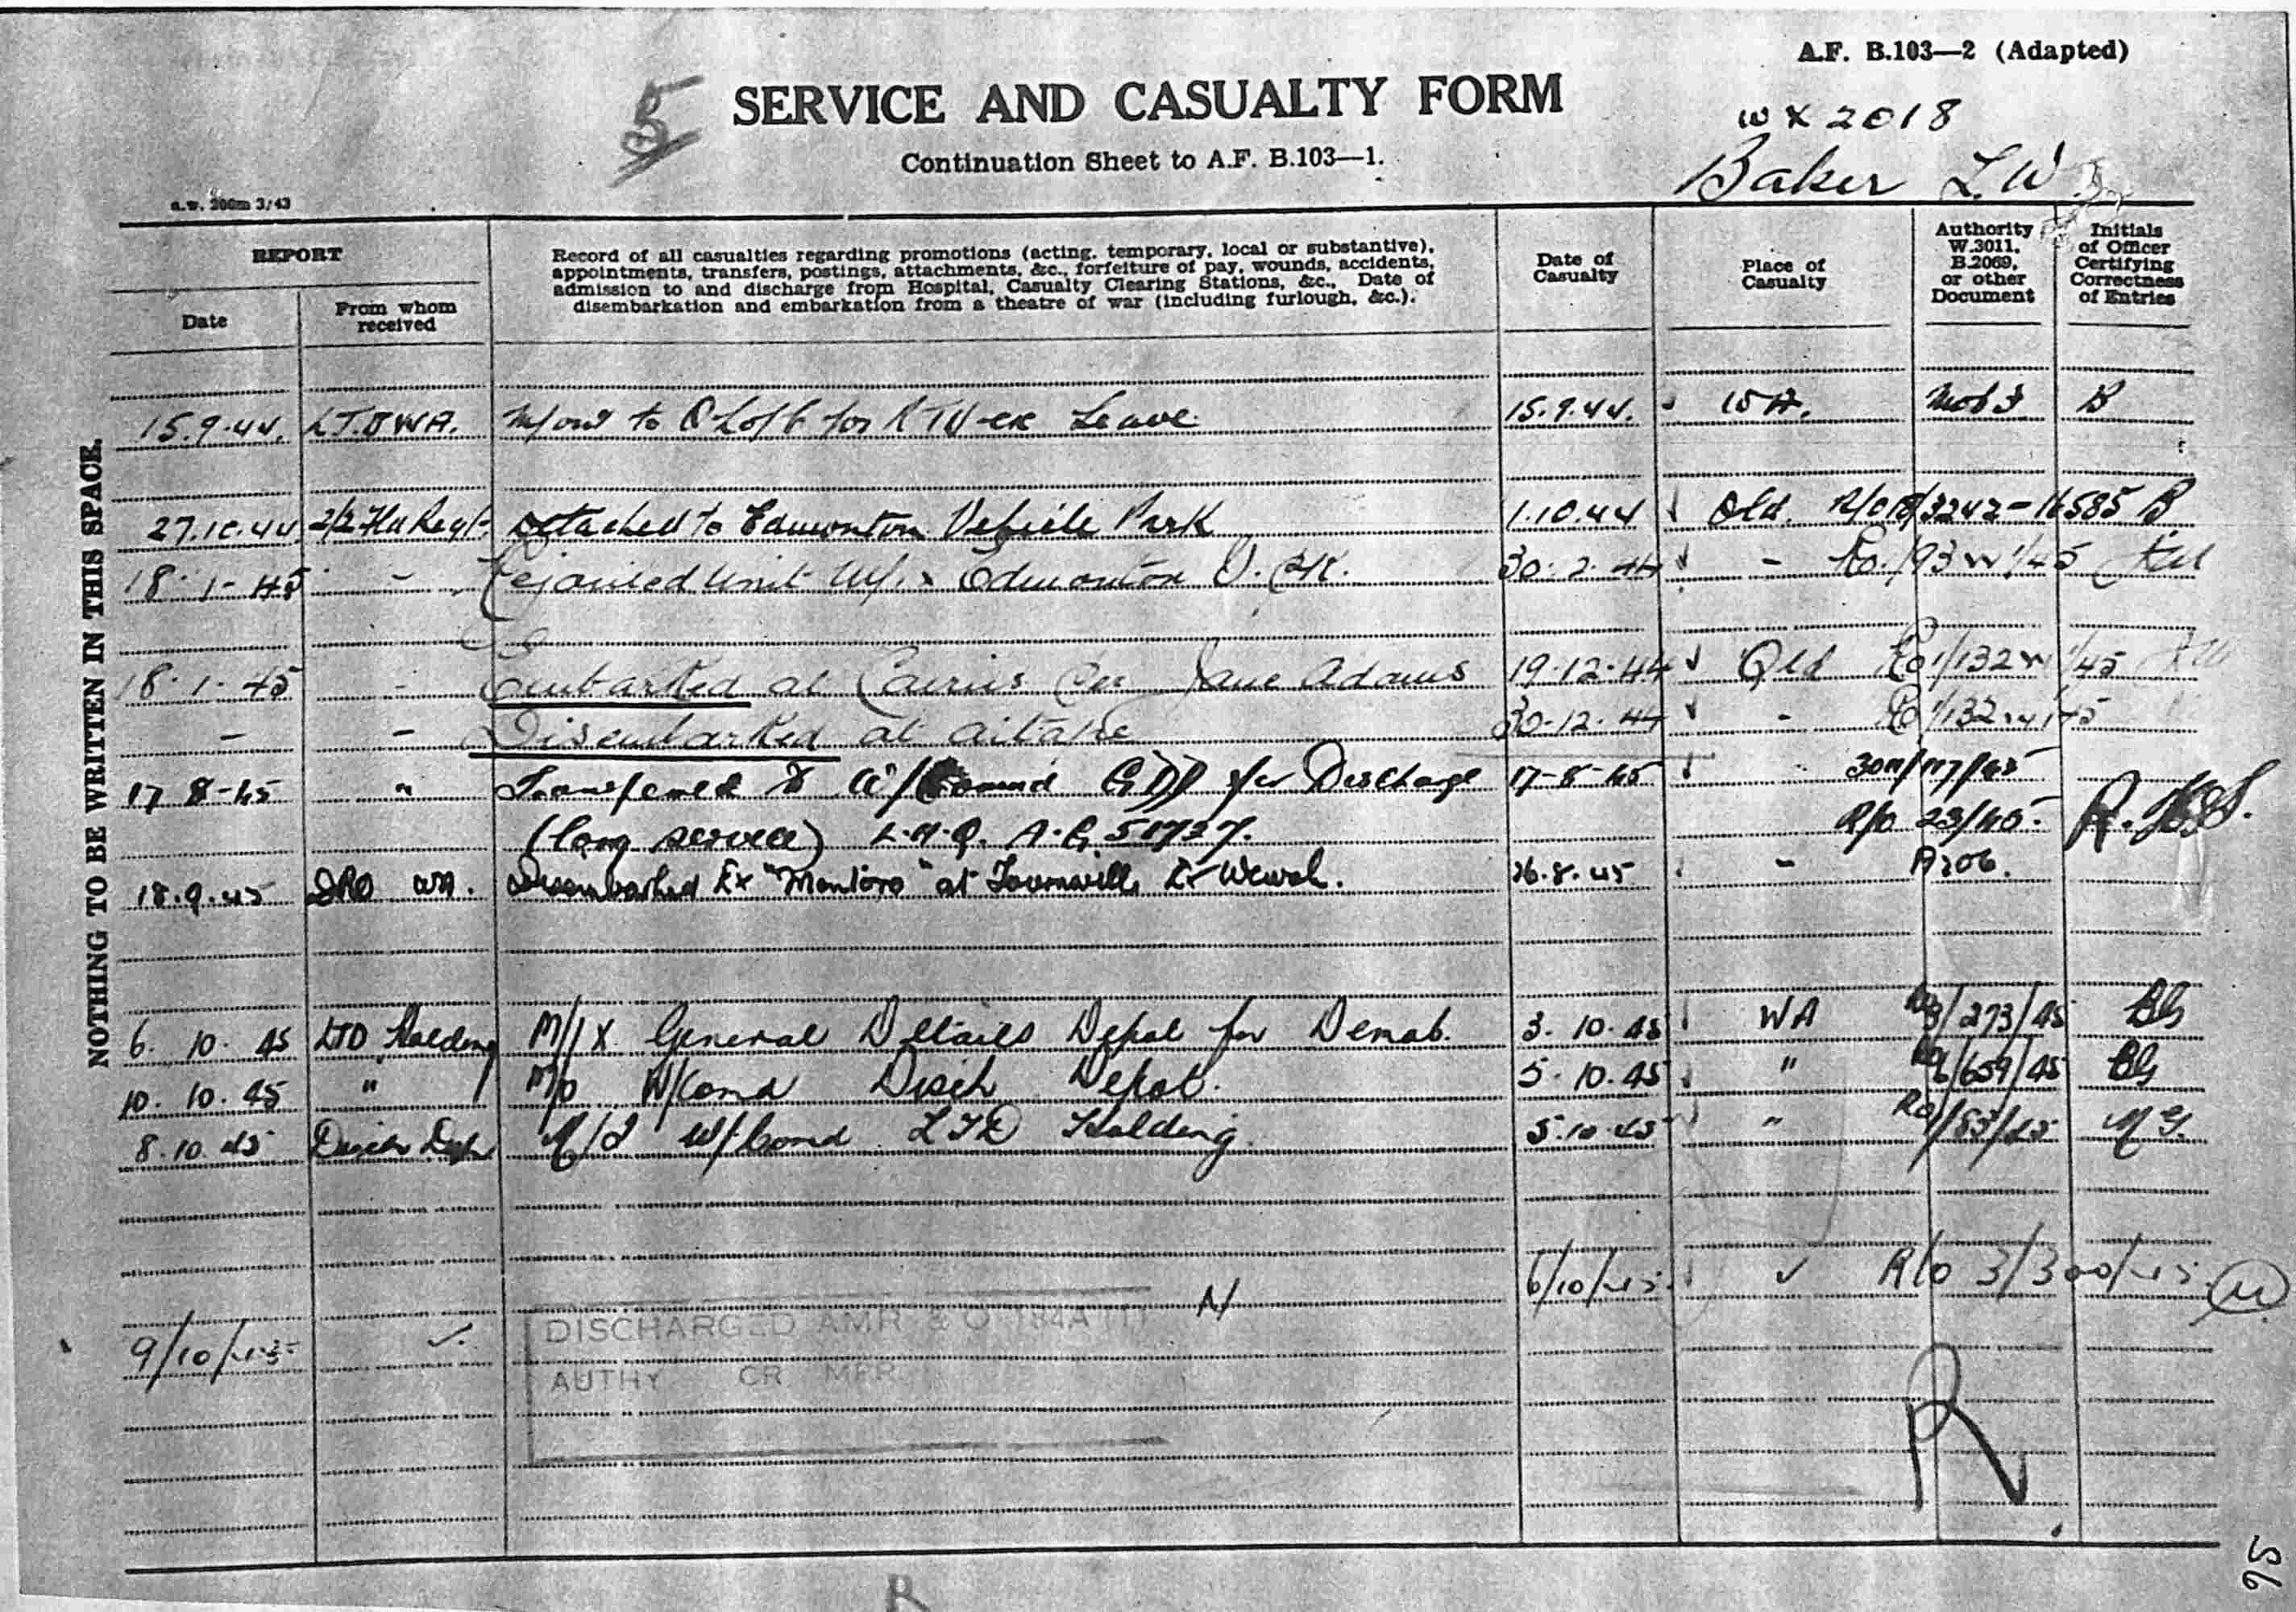 A.F. B.103—2 (Adapted)
5
SERVICE AND CASUALTY FORM
WX 2018
Continuation Sheet to A.F. B.103—1.
Baker L.W.
a.w. 200m 3/43
NOTHING TO BE WRITTEN IN THIS SPACE.
REPORT
Date
From whom
received
Record of all casualties regarding promotions (acting, temporary, local or substantive),
appointments, transfers, postings, attachments, &c., forfeiture of pay, wounds, accidents,
admission to and discharge from Hospital, Casualty Clearing Stations, &c., Date of
disembarkation and embarkation from a theatre of war (including furlough, &c.).
Date of
Casualty
Place of
Casualty
Authority
W.3011,
B.2069,
or other
Document
Initials
of Officer
Certifying
Correctness
of Entries
15.9.44. LTD WA. to for RTU ex Leave 15.9.44. WA. B
27.10.44 2/2 Fld Regt. Detached to Edmonton Vehicle Park 1.10.44 Qld. 3242-16585 B
18-1-45 - Rejoined Unit Edmonton V. PK. -
18-1-45 - Embarked at Cairns Per Jane Adams 19-12-44 Qld Ro 1/132
- - Disembarked at Aitape 30-12-44 - Ro 1/132
17-8-45 " Transferred to W/Command GDD for Discharge 17-8-45
(long service) L.H.Q. A.G 51727. R/o 23/45.
18.9.45 DRO WA. Disembarked Ex "Montoro" at Townsville Ex Wewak. 26.8.45 - A206.
6. 10. 45 LTD Holding M/I X General Details Depot for Demob. 3. 10. 45 WA 3/273/45 BG
10. 10. 45 " M/O W/Comd Disch Depot. 5. 10. 45 " /659/45 BG
8.10.45 Disch Dep W/Comd LTD Holding 5.10.45 " Ro /83/45
6/10/45 ✓ R/O 3/300/45
N
9/10/45 ✓ DISCHARGED AMR & O 184A (1)
AUTHY CR MPR
R
R
95